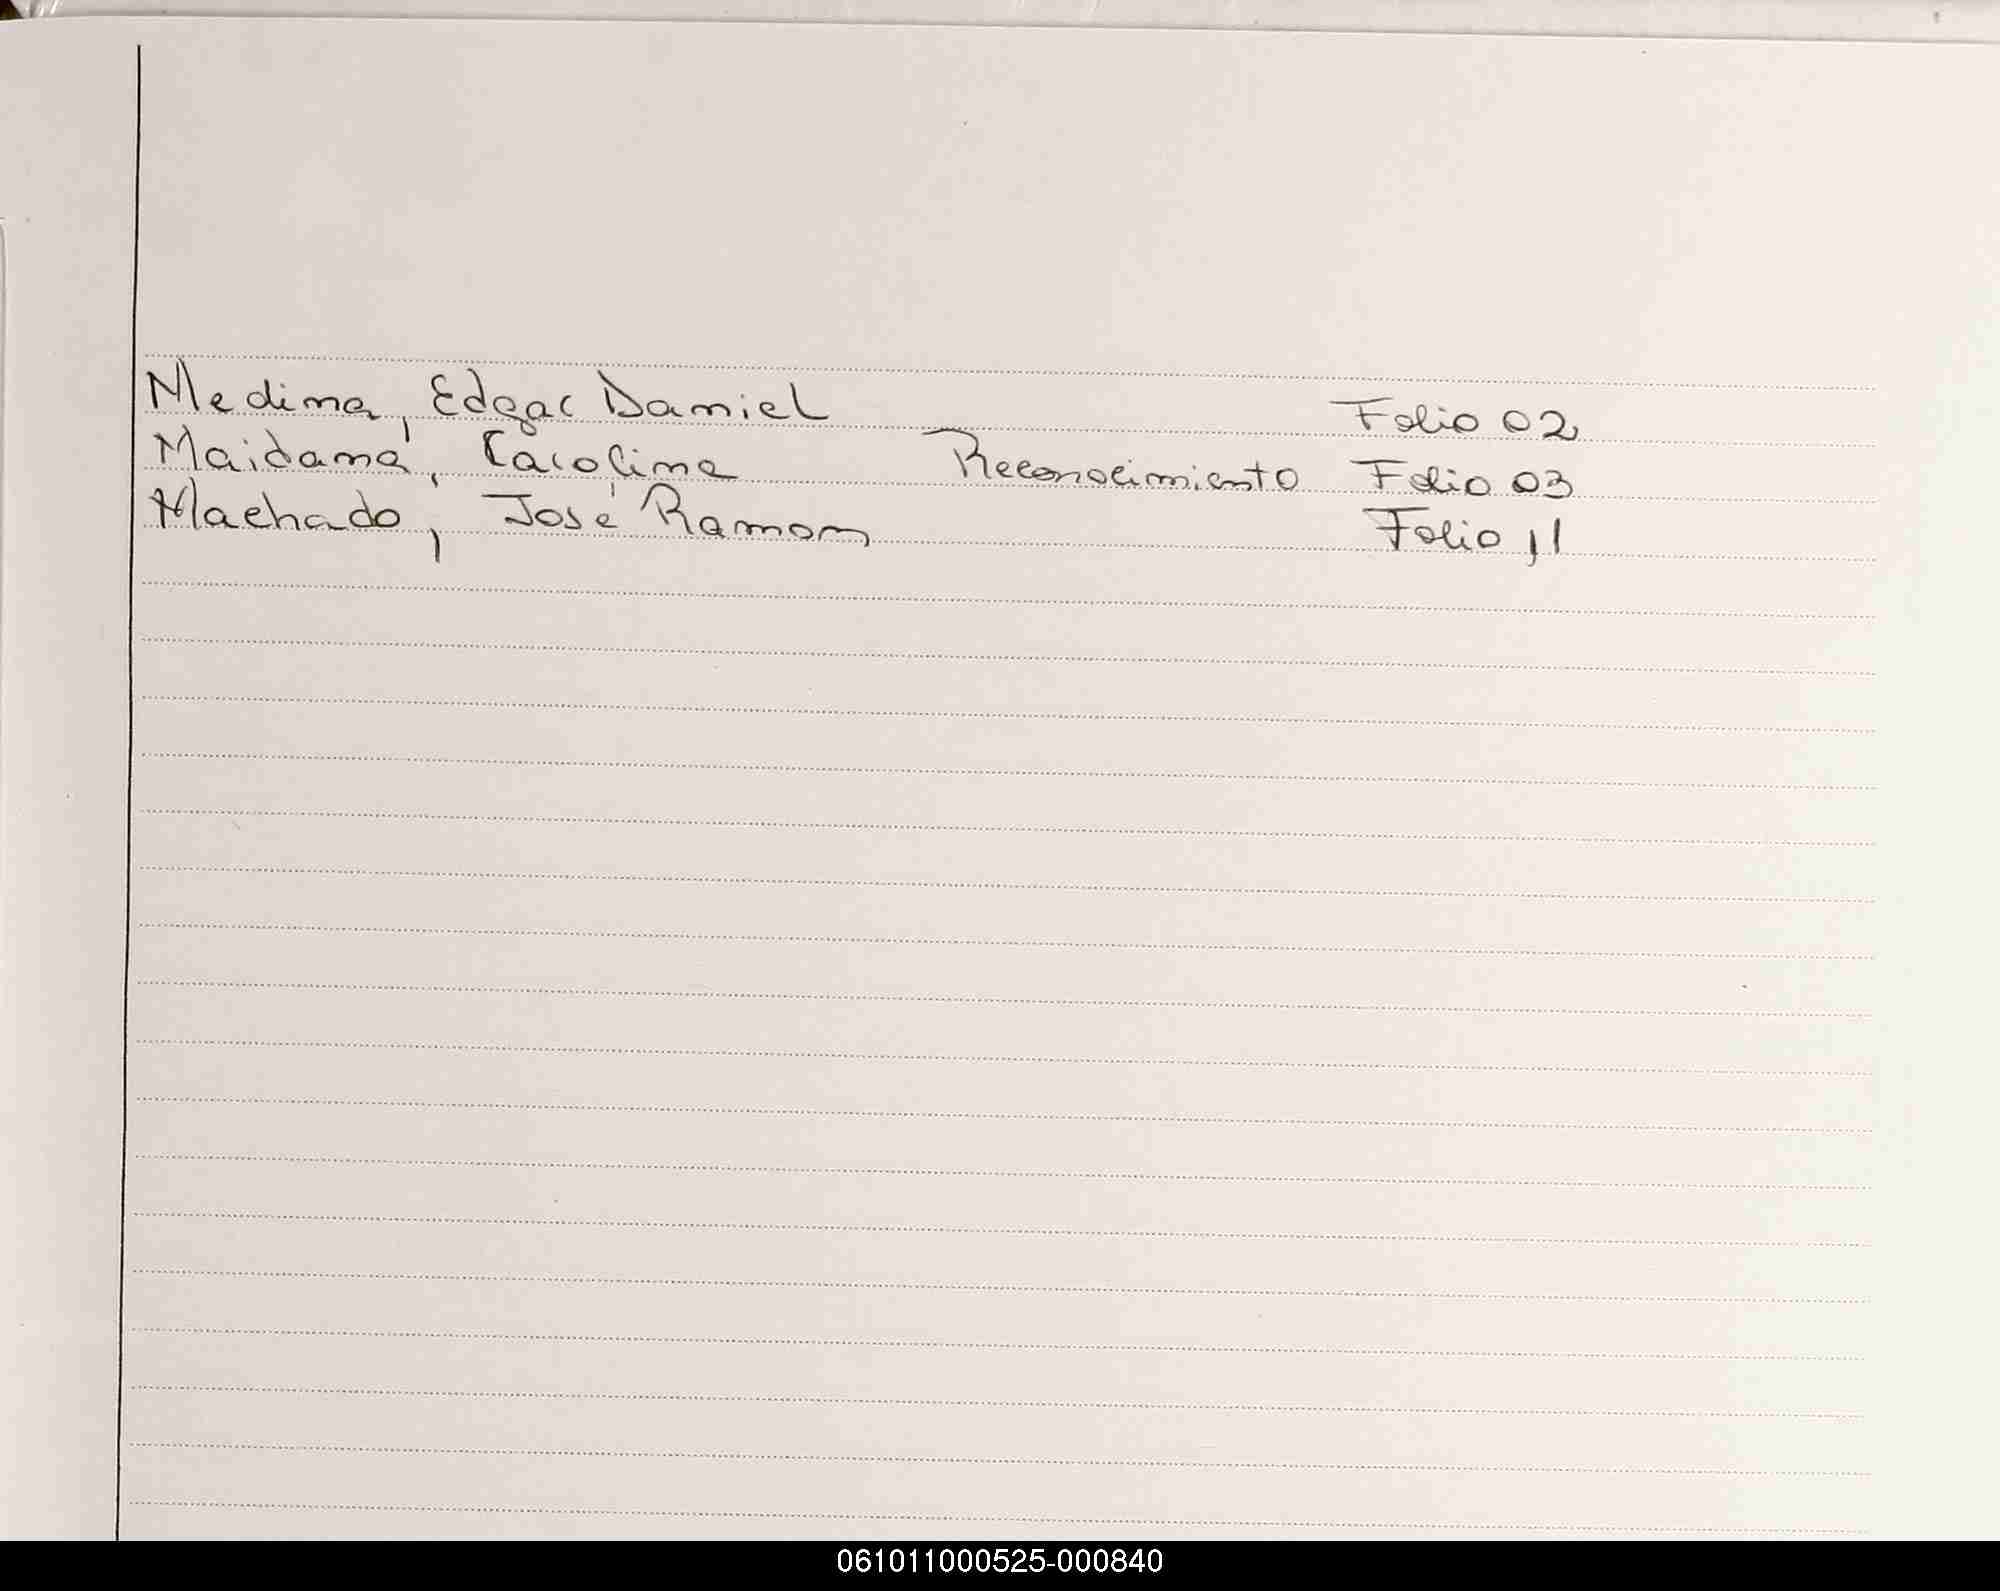 Medina, Edgar Daniel Folio 02
Maidana, Carolina Reconocimiento Folio 03
Machado, José Ramon Folio 11
061011000525-000840